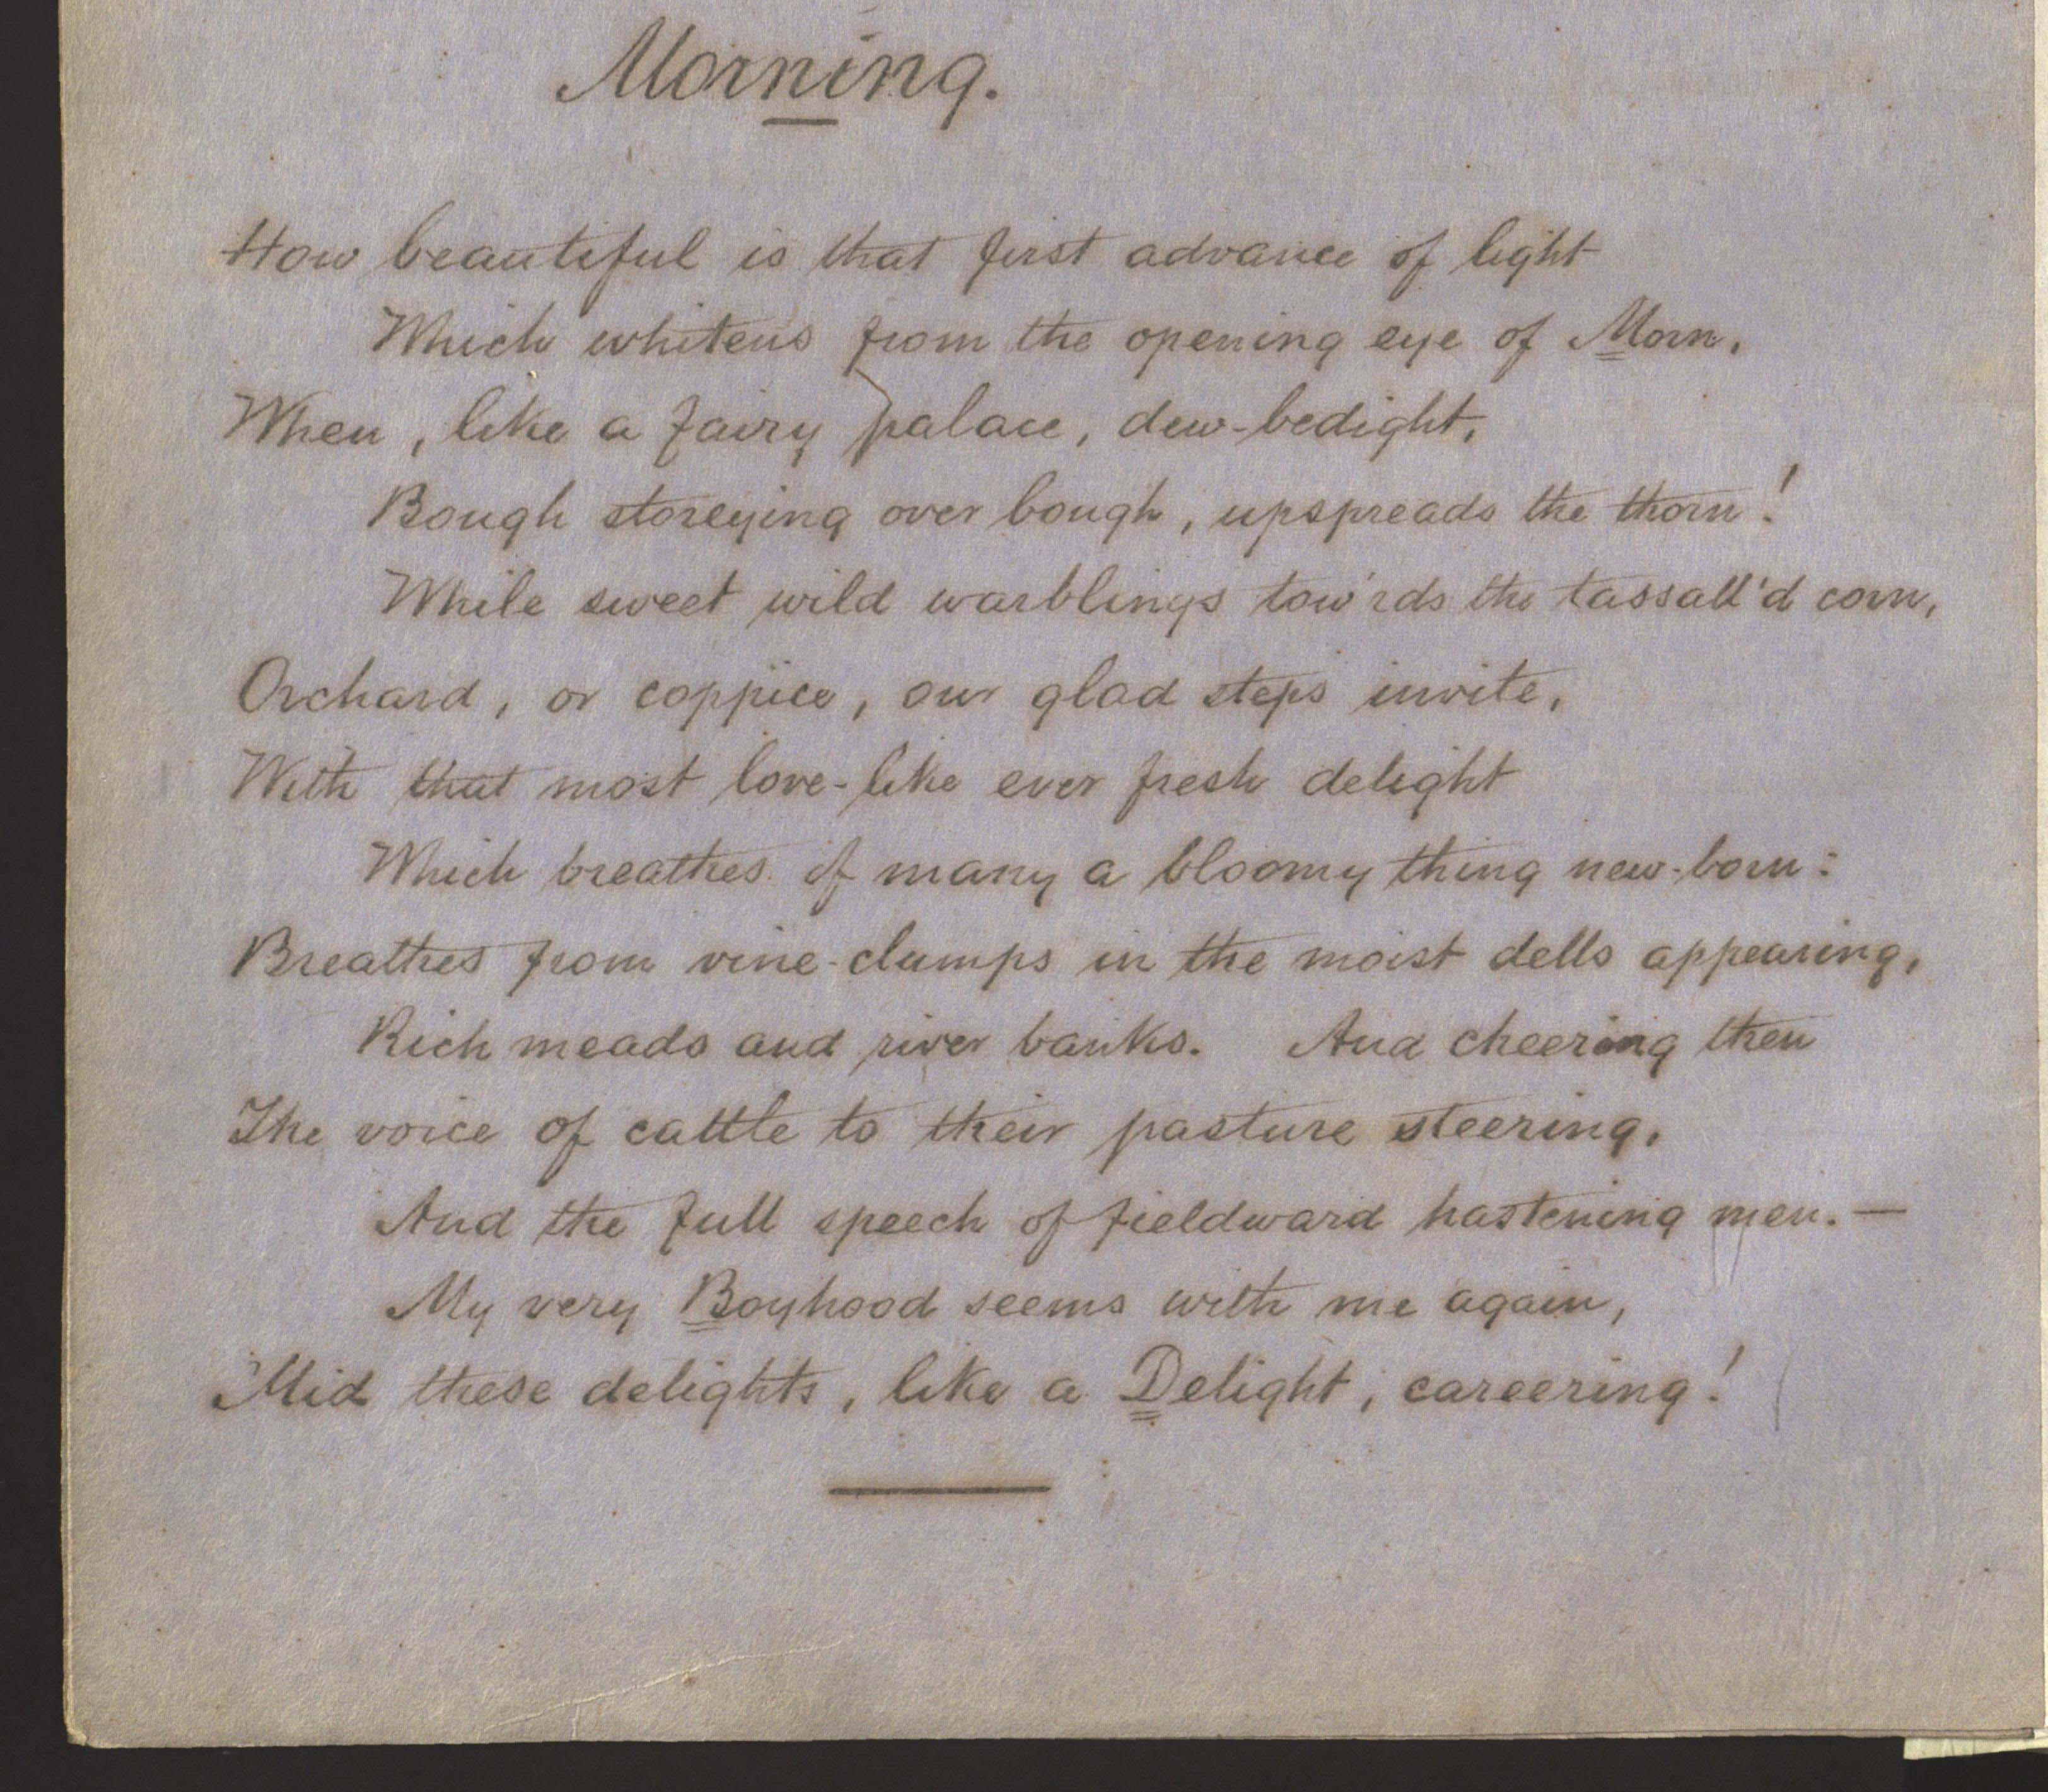 Morning.
How beautiful is that first advance of light
Which whitens from the opening eye of Morn,
When, like a fairy palace, dew-bedight,
Bough storeying over bough, upspreads the thorn!
While sweet wild warblings tow'rds the tassall'd corn,
Orchard, or coppice, our glad steps invite,
With that most love-like ever fresh delight
Which breathes of many a bloomy thing new-born:
Breathes from vine-clumps in the moist dells appearing,
Rich meads and river banks. And cheering then
The voice of cattle to their pasture steering,
And the full speech of fieldward hastening men. —
My very Boyhood seems with me again,
Mid these delights, like a Delight, careering!